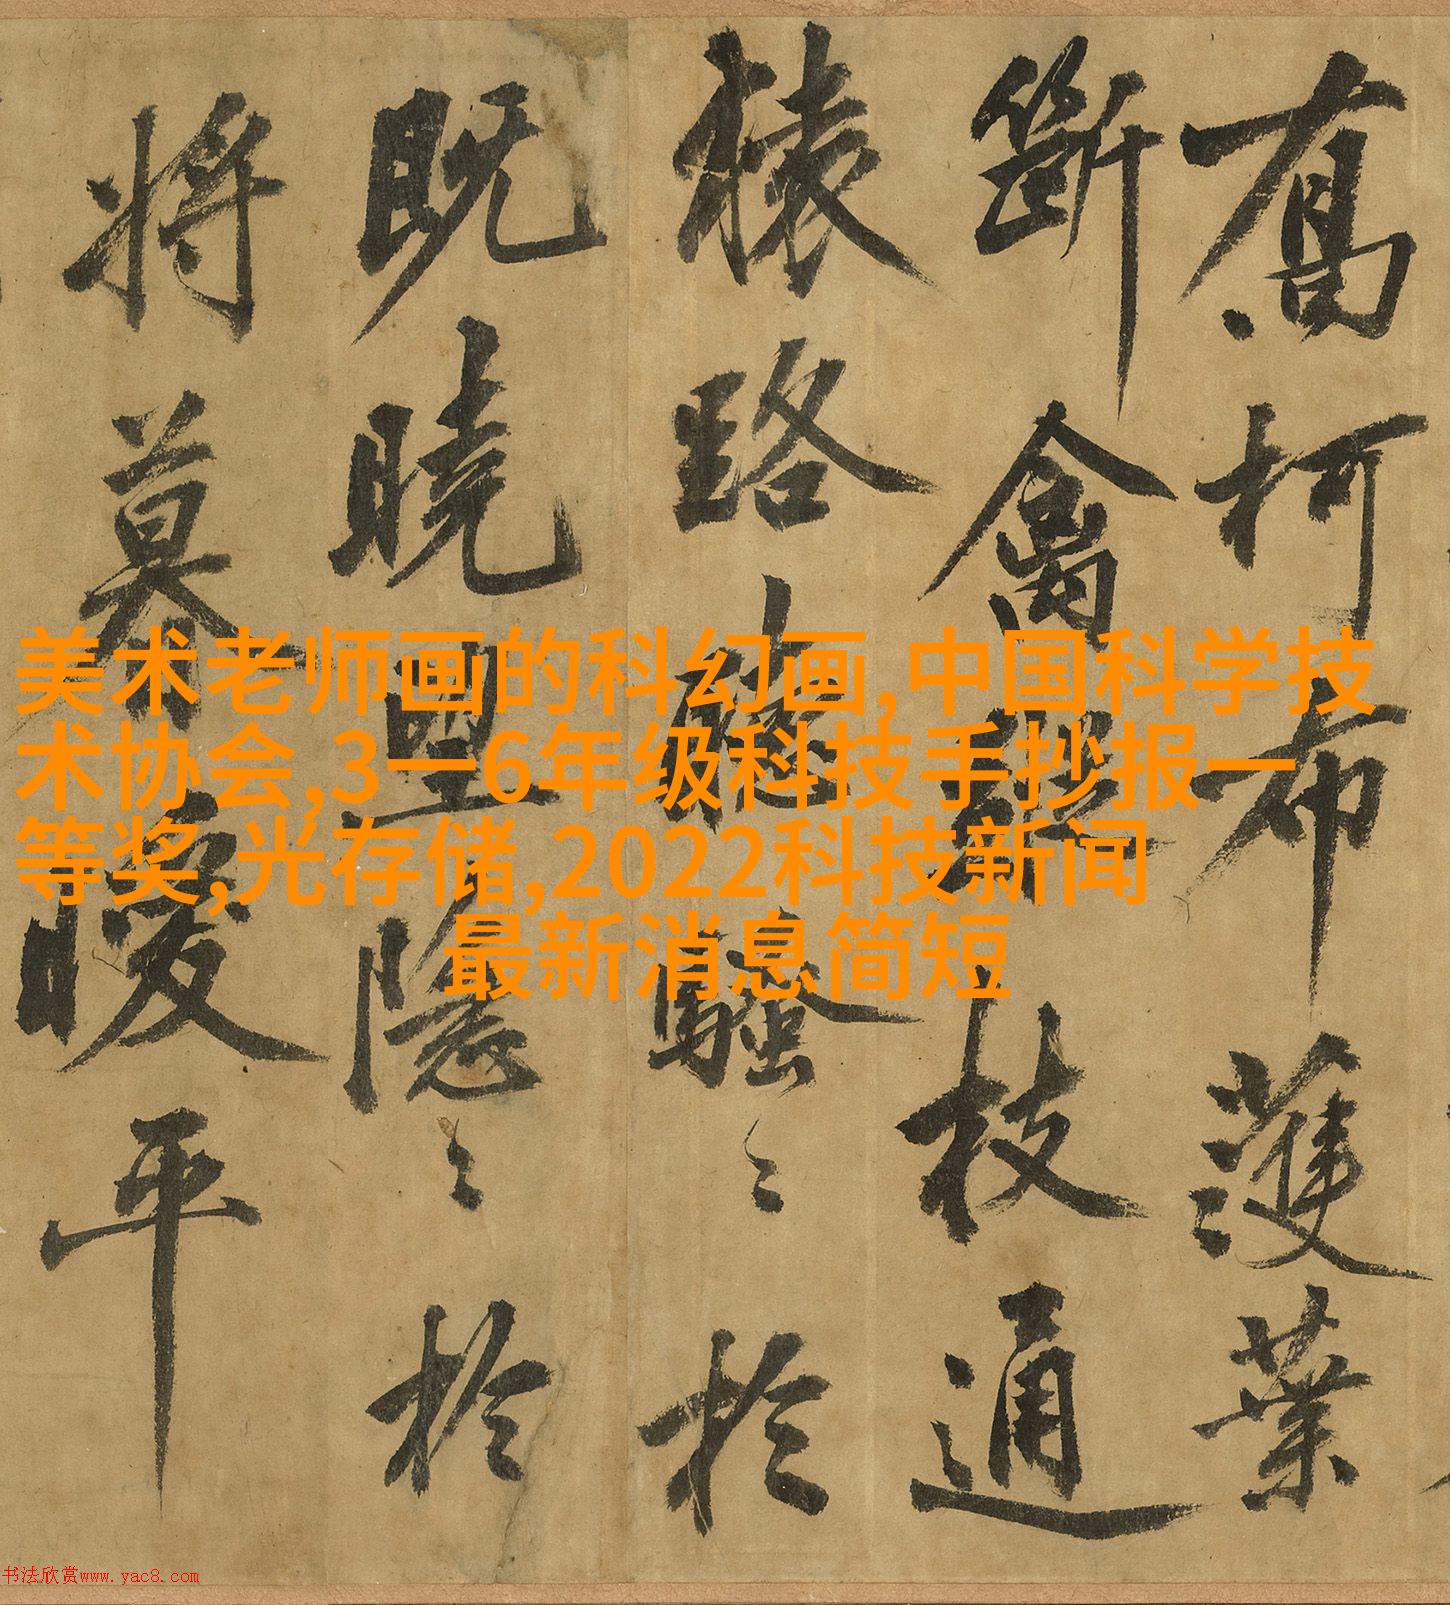 喬柯布濩葉
斷禽枝通
猿路聽騷〻於
既曉望隱〻於
將暮曖平
美术老师画的科幻画,中国科学技
术协会,3一6年级科技手抄报一
等奖,光存储,2022科技新闻
最新消息简短
书法欣赏www.yac8.com